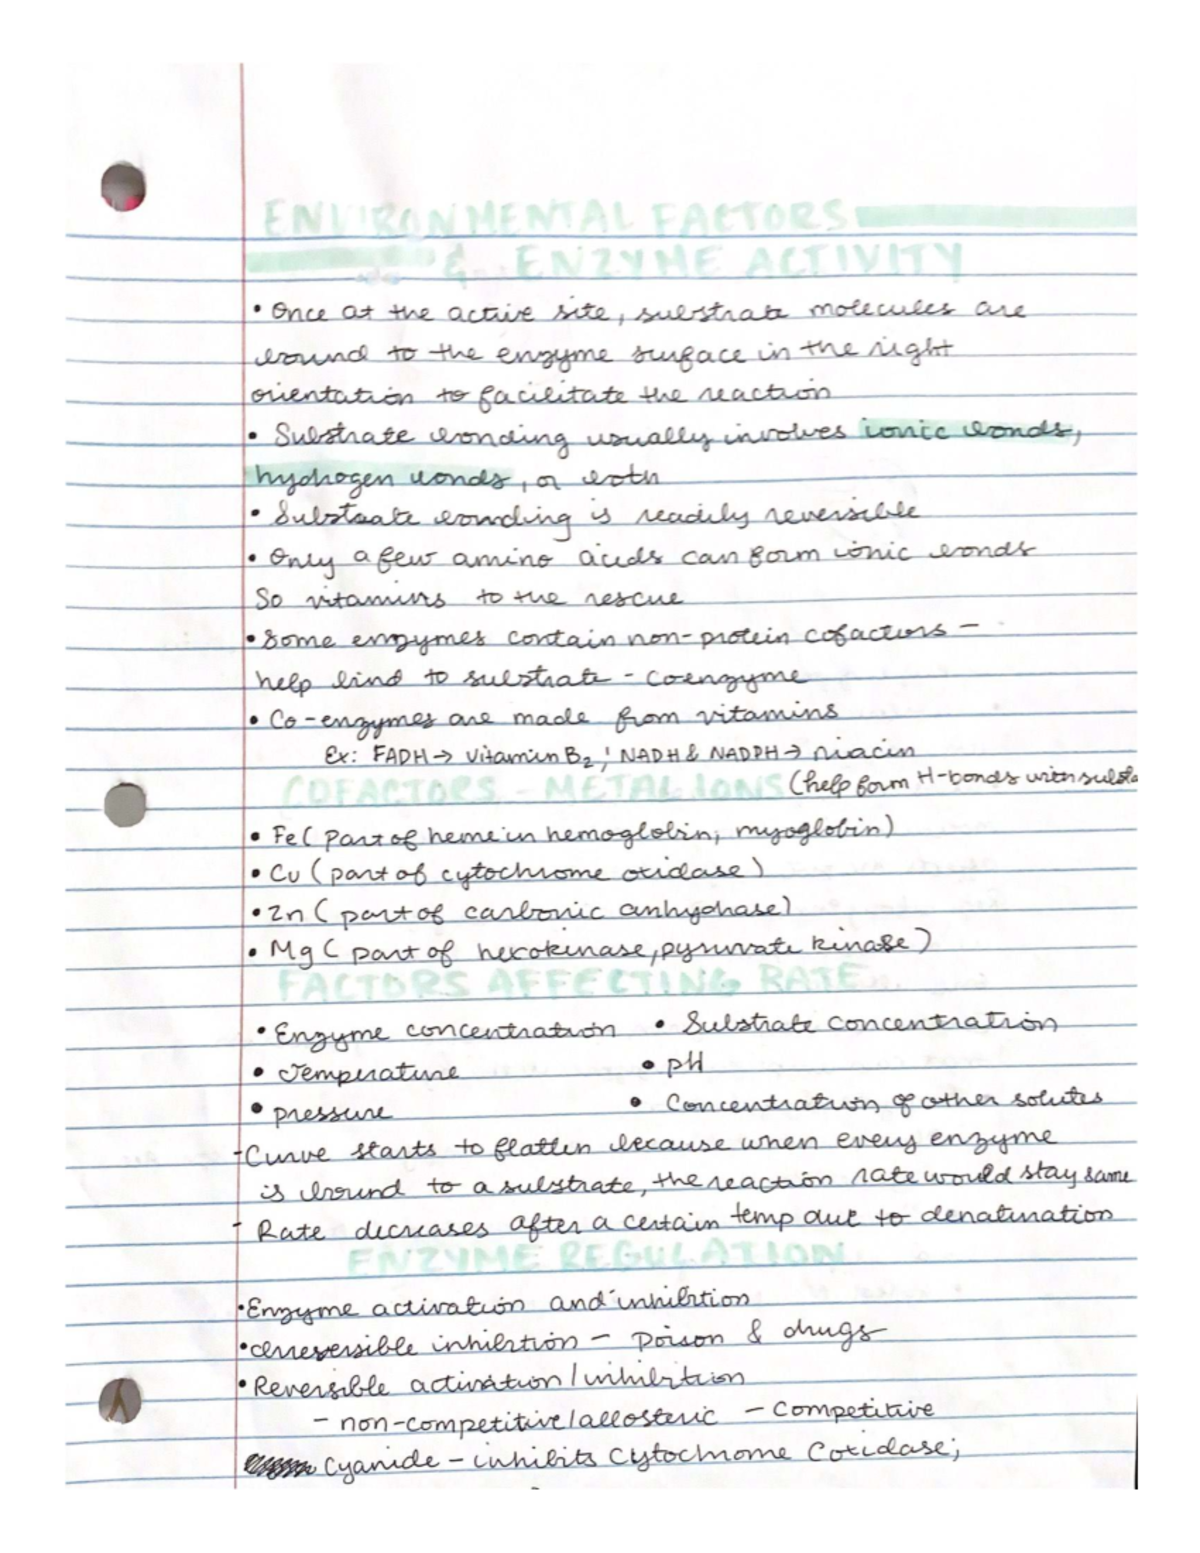 ENVIRONMENTAL FACTORS
& ENZYME ACTIVITY
• Once at the active site, substrate molecules are
bound to the enzyme surface in the right
orientation to facilitate the reaction
• Substrate bonding usually involves ionic bonds,
hydrogen bonds, or both
• Substrate bonding is readily reversible
• Only a few amino acids can form ionic bonds
So vitamins to the rescue
• Some enzymes contain non-protein cofactors –
help bind to substrate - coenzyme
• Co-enzymes are made from vitamins
Ex: FADH → Vitamin B2; NADH & NADPH → niacin
COFACTORS - METAL IONS (help form H-bonds with
• Fe (part of heme in hemoglobin, myoglobin)
• Cu (part of cytochrome oxidase)
• Zn (part of carbonic anhydrase)
• Mg (part of hexokinase, pyruvate kinase)
FACTORS AFFECTING RATE
• Enzyme concentration • Substrate concentration
• Temperature • pH
• pressure • Concentration of other solutes
- Curve starts to flatten because when every enzyme
is bound to a substrate, the reaction rate would stay same
- Rate decreases after a certain temp due to denaturation
ENZYME REGULATION
• Enzyme activation and inhibition
• irreversible inhibition – Poison & drugs
• Reversible activation/inhibition
– non-competitive/allosteric – Competitive
Cyanide – inhibits Cytochrome Coxidase;